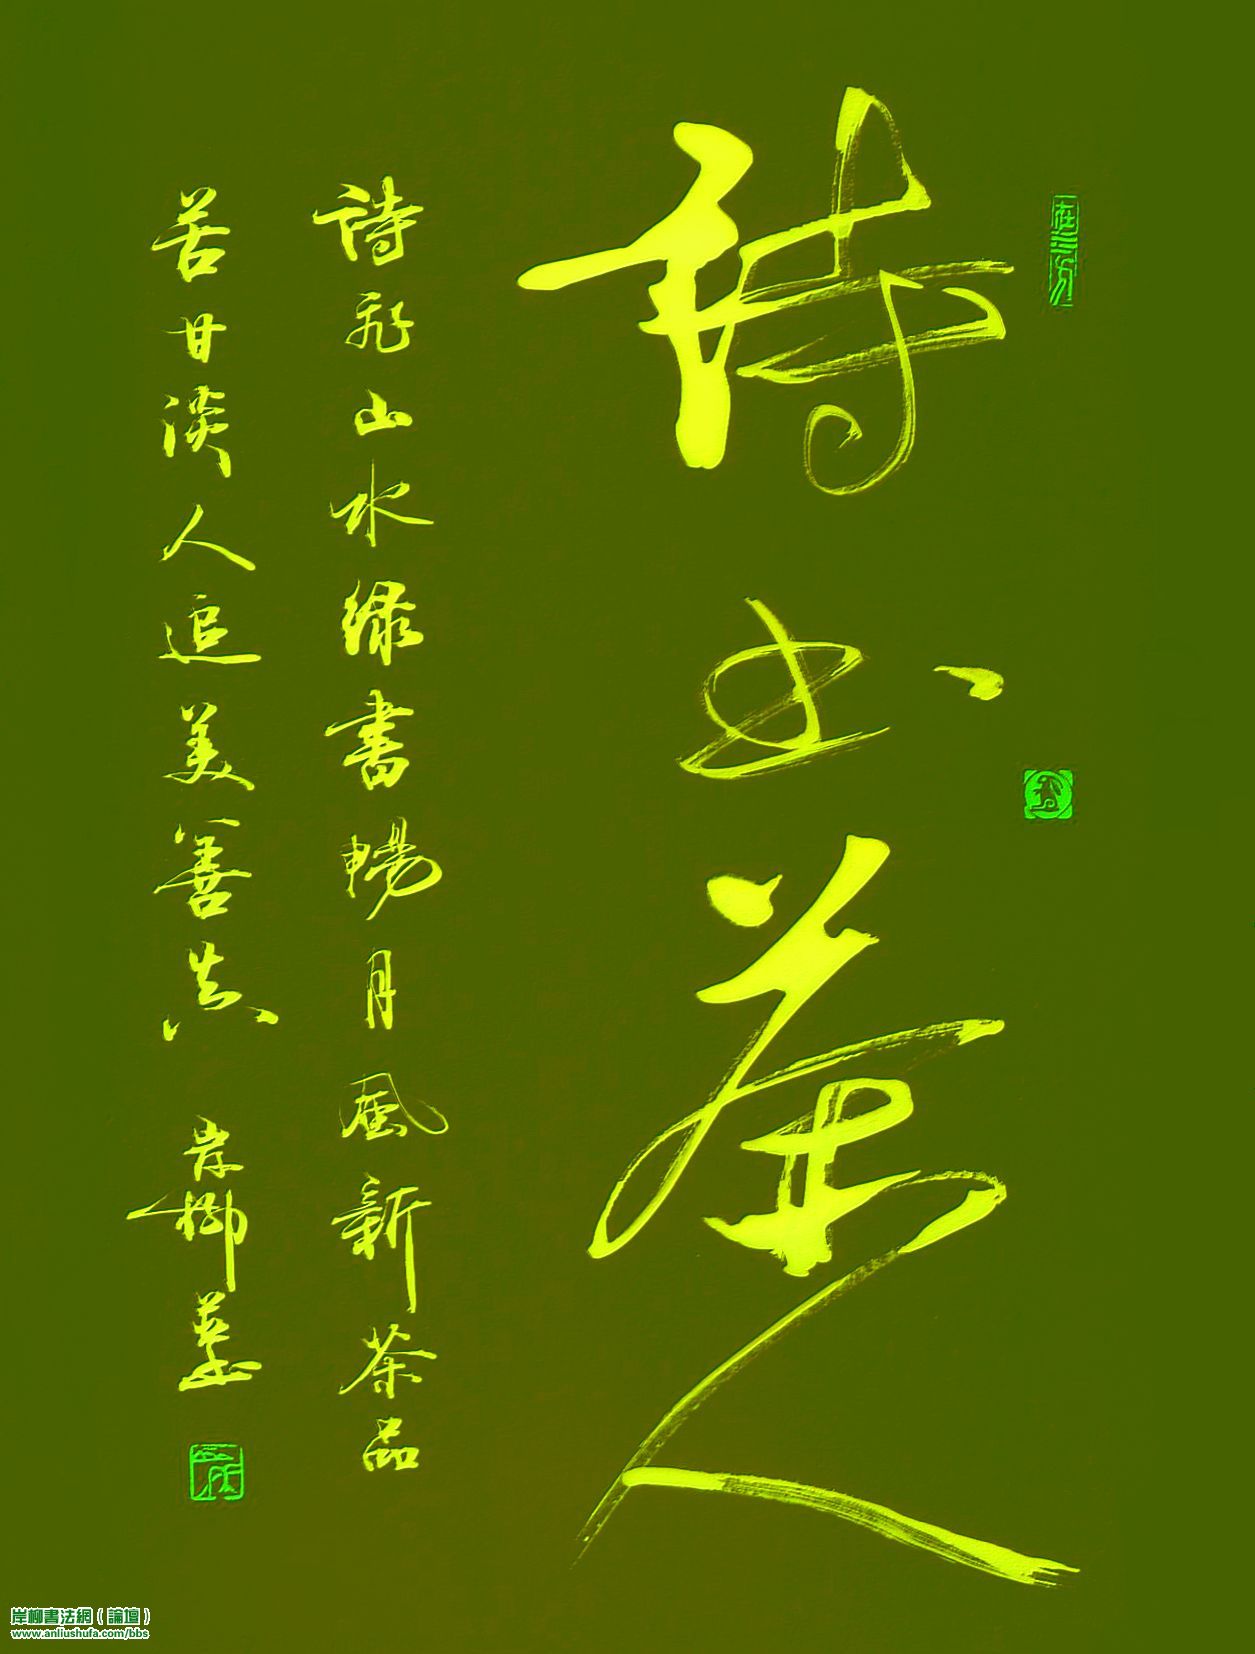 詩书茶人
詩飛山水緑書暢月風新茶品
苦甘淡人追美善真 岸柳
岸柳書法網（論壇）
www.anliushufa.com/bbs